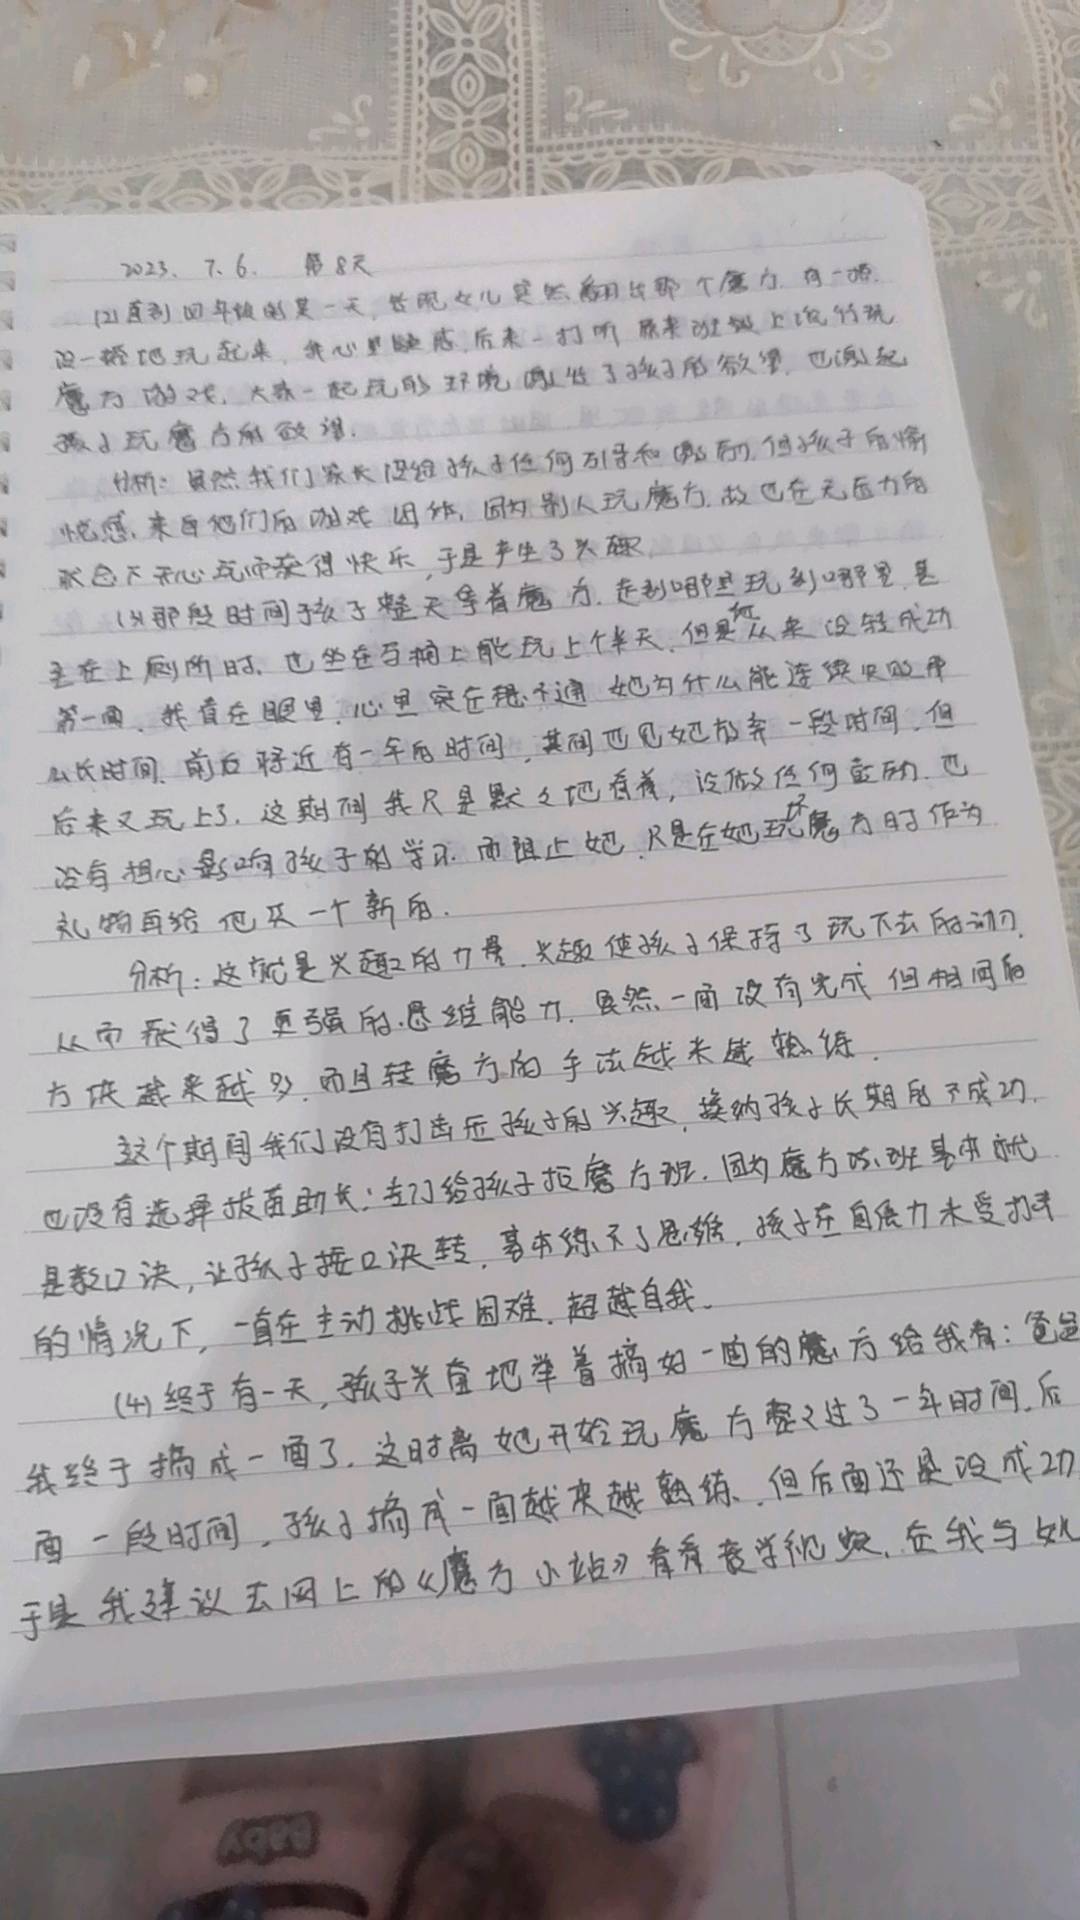 2023. 7. 6. 第8天
(2)直到四年级的某一天,发现女儿突然翻出那个魔方,有一搭
没一搭地玩起来,我心里疑惑,后来一打听原来班级上流行玩
魔方游戏,大家一起玩的环境激发了孩子的欲望,也激起
孩子玩魔方的欲望.
分析:虽然我们家长没给孩子任何引导和激励,但孩子的愉
悦感,来自他们的游戏团体,因为别人玩魔方,故也在无压力的
状态下开心玩而获得快乐,于是产生了兴趣,
(3)那段时间孩子整天拿着魔方,走到哪里玩到哪里,甚
至在上厕所时,也坐在马桶上能玩上个半天,但是她从来没转成功
第一面,我看在眼里,心里实在想不通她为什么能连续失败那
么长时间,前后将近有一年的时间,其间也见她放弃一段时间,但
后来又玩上了,这期间我只是默々地看着,没做任何鼓励,也
没有担心影响孩子的学习而阻止她,只是在她玩坏魔方时作为
礼物再给他买一个新的.
分析:这就是兴趣的力量,兴趣使孩子保持了玩下去的动力,
从而获得了更强的思维能力,虽然一面没有完成但相同的
方块越来越多,而且转魔方的手法越来越熟练.
这个期间我们没有打击压孩子的兴趣,接纳孩子长期的不成功,
也没有选择拔苗助长:专门给孩子报魔方班,因为魔方培训班基本就
是教口诀,让孩子按口诀转,基本练不了思维,孩子在自信力未受打击
的情况下,一直在主动挑战困难,超越自我.
(4)终于有一天,孩子兴奋地举着搞好一面的魔方给我看:爸爸
我终于搞成一面了,这时离她开始玩魔方整々过了一年时间,后
面一段时间,孩子搞成一面越来越熟练,但后面还是没成功
于是我建议去网上的《魔方小站》看看教学视频,在我与她
Baby